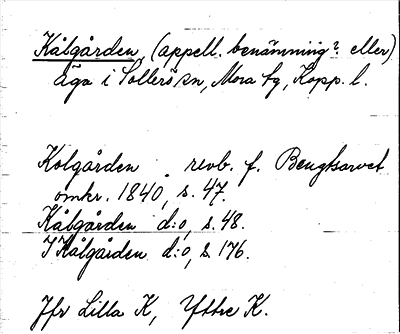 Kålgården, (appell. benämning? eller)
äga i Sollerö sn, Mora tg, Kopp. l.
Kolgården revb. f. Bengtsarvet
omkr. 1840, s. 47.
Kålgården d:o, s. 48.
I Kålgården d:o, s. 176.
Jfr Lilla K, Yttre K.